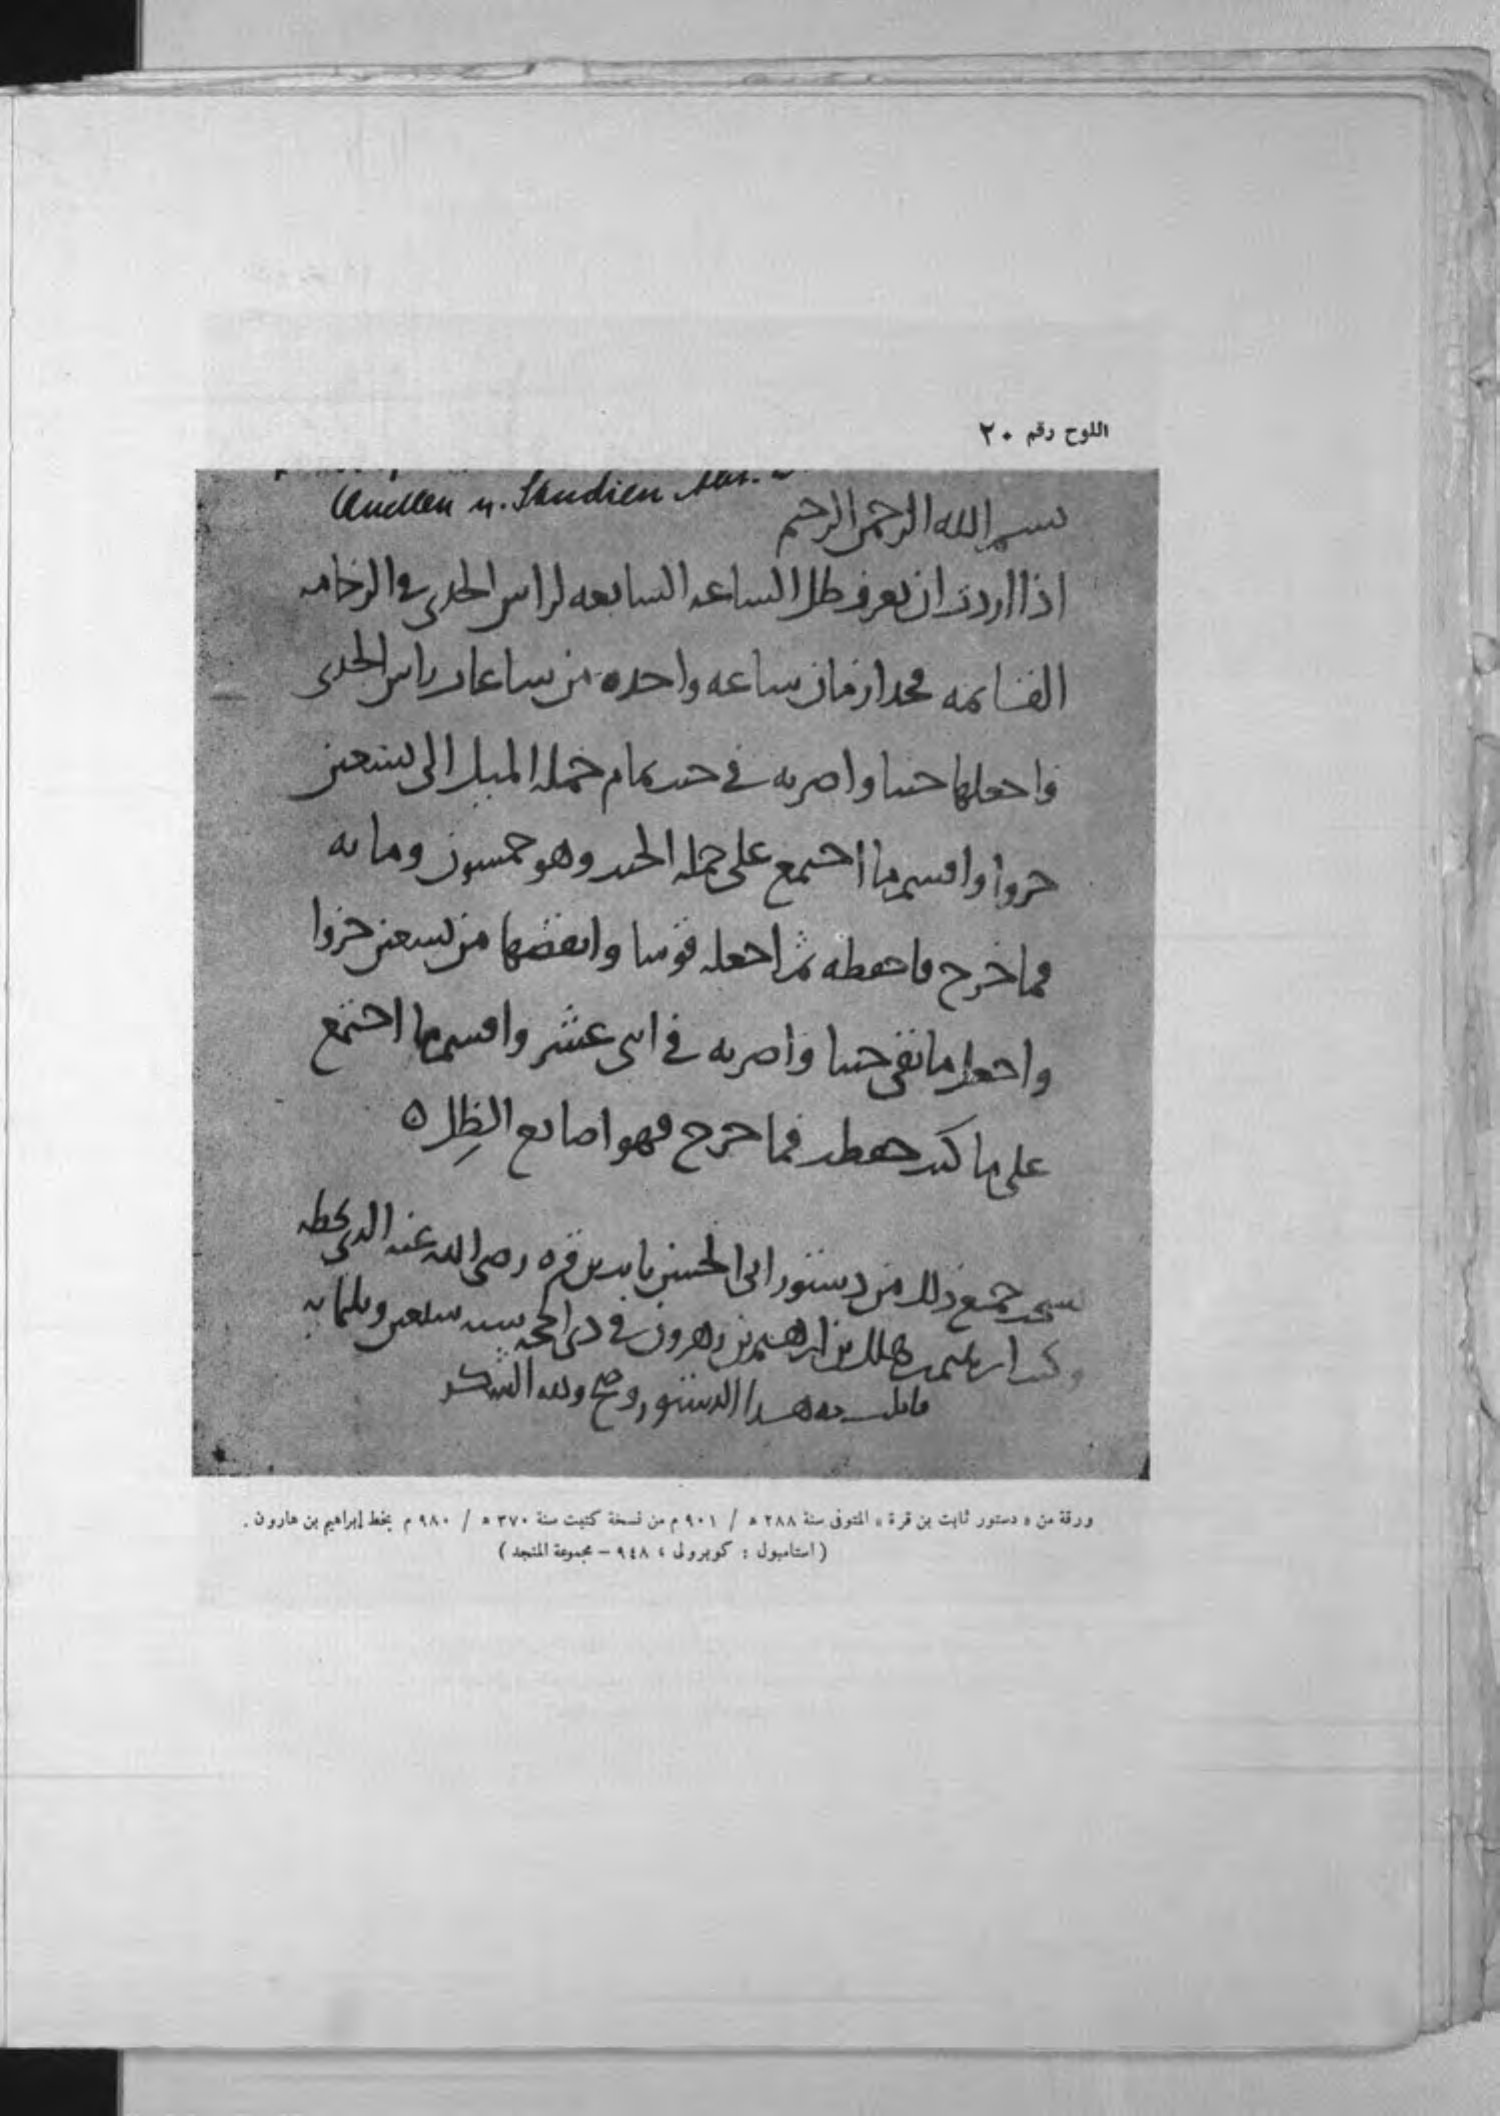 اللوح رقم ٢٠
Quellen u. Studien Abt.
بسم الله الرحمن الرحيم
اذا اردت ان تعرف ظل الساعه السابعه لراس الجدى فى الرخامه
القائمه فخذ ازمان ساعه واحده من ساعات راس الجدى
واجعلها جيبا واضربه فى جيب تمام جمله الميل الى تسعين
جزوا واقسم ما اجتمع على جمله الجيب وهو خمسون ومايه
فما خرج فاحفظه ثم اجعله قوسا وانقصها من تسعين جزوا
واجعل ما بقى جيبا واضربه فى اثنى عشر واقسم ما اجتمع
على ما كنت حفظت فما خرج فهو اصابع الظل ه
نسخت جميع ذلك من دستور ابى الحسن ثابت بن قره رضى الله عنه الذى بخطه
وكتب ابرهيم بن هلال بن ابرهيم بن زهرون فى ذى الحجه سنه سبعين وثلثمايه
قابلت به هذا الدستور وصح ولله الشكر
ورقة من « دستور ثابت بن قرة » المتوفى سنة ٢٨٨ ه / ٩٠١ م من نسخة كتبت سنة ٣٧٠ ه / ٩٨٠ م بخط إبراهيم بن هارون .
( استامبول : كوبرولى ، ٩٤٨ – مجموعة المنجد )